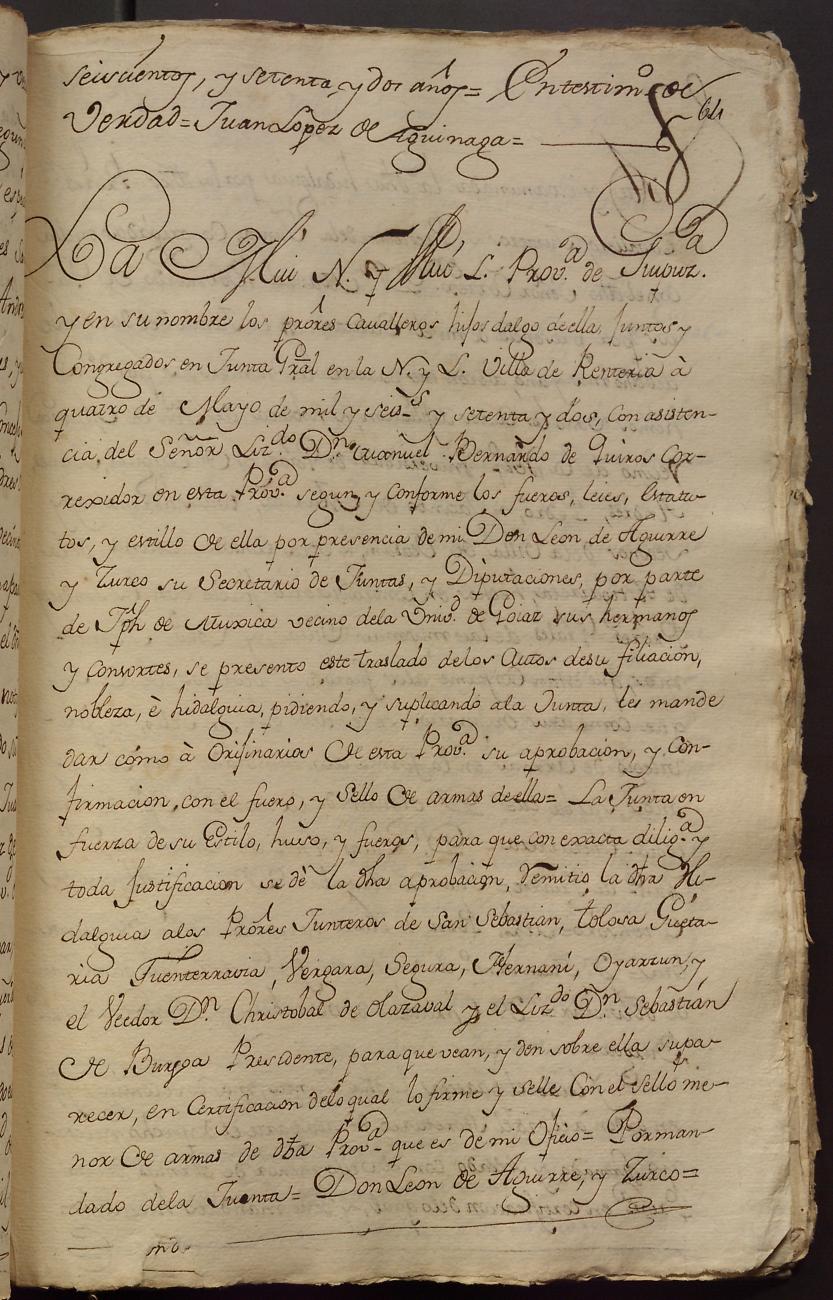 seiscientos, y setenta, y dos años= En testim.o de
64
Verdad= Juan Lopez de Aguinaga=
La Mui N. y Mui L. Prov.a de Guipuz.a
y en su nombre los prōres Cavalleros hijos dalgo de ella, Juntos y
Congregados en Junta Gral en la N. y L. Villa de Renteria à
quatro de Mayo de mil y seis.s y setenta y dos, con asisten-
cia del Señor Liz.do D.n Manuel Bernardo de Quiros Cor-
rexidor en esta Prov.a segun, y conforme los fueros, leies, Estatu-
tos, y estillo de ella por presencia de mi Don Leon de Aguirre
y Zurco su Secretario de Juntas, y Diputaciones, por parte
de Jph de Muxica vecino dela Univ.d de Goiaz sus hermanos
y Consortes, se presento este traslado delos Autos desu filiación,
nobleza, è hidalguia, pidiendo, y suplicando ala Junta, les mande
dar cómo à Orijinarios de esta Prov.a su aprobacion, y con-
firmacion, con el fuero, y Sello de armas de ella= La Junta en
fuerza de su Estilo, huso, y fueros, para que con exacta dilig.a y
toda justificacion se dè la dha aprobacion, Remitio la dha Hi-
dalguia alos Prōres Junteros de San Sebastian, tolosa Gueta-
ria Fuenterravia, Vergara, Segura, Hernani, Oyarzun, y
el Veedor D.n Christobal de Olazaval y el Liz.do D.n Sebastián
de Burgoa Presidente, para que vean, y den sobre ella supa-
recer, en Certificacion delo qual lo firme y selle Con el sello me-
nor de armas de dha Prov.a que es de mi Oficio= Porman-
dado dela Juenta= Don Leon de Aguirre, y Zurco=